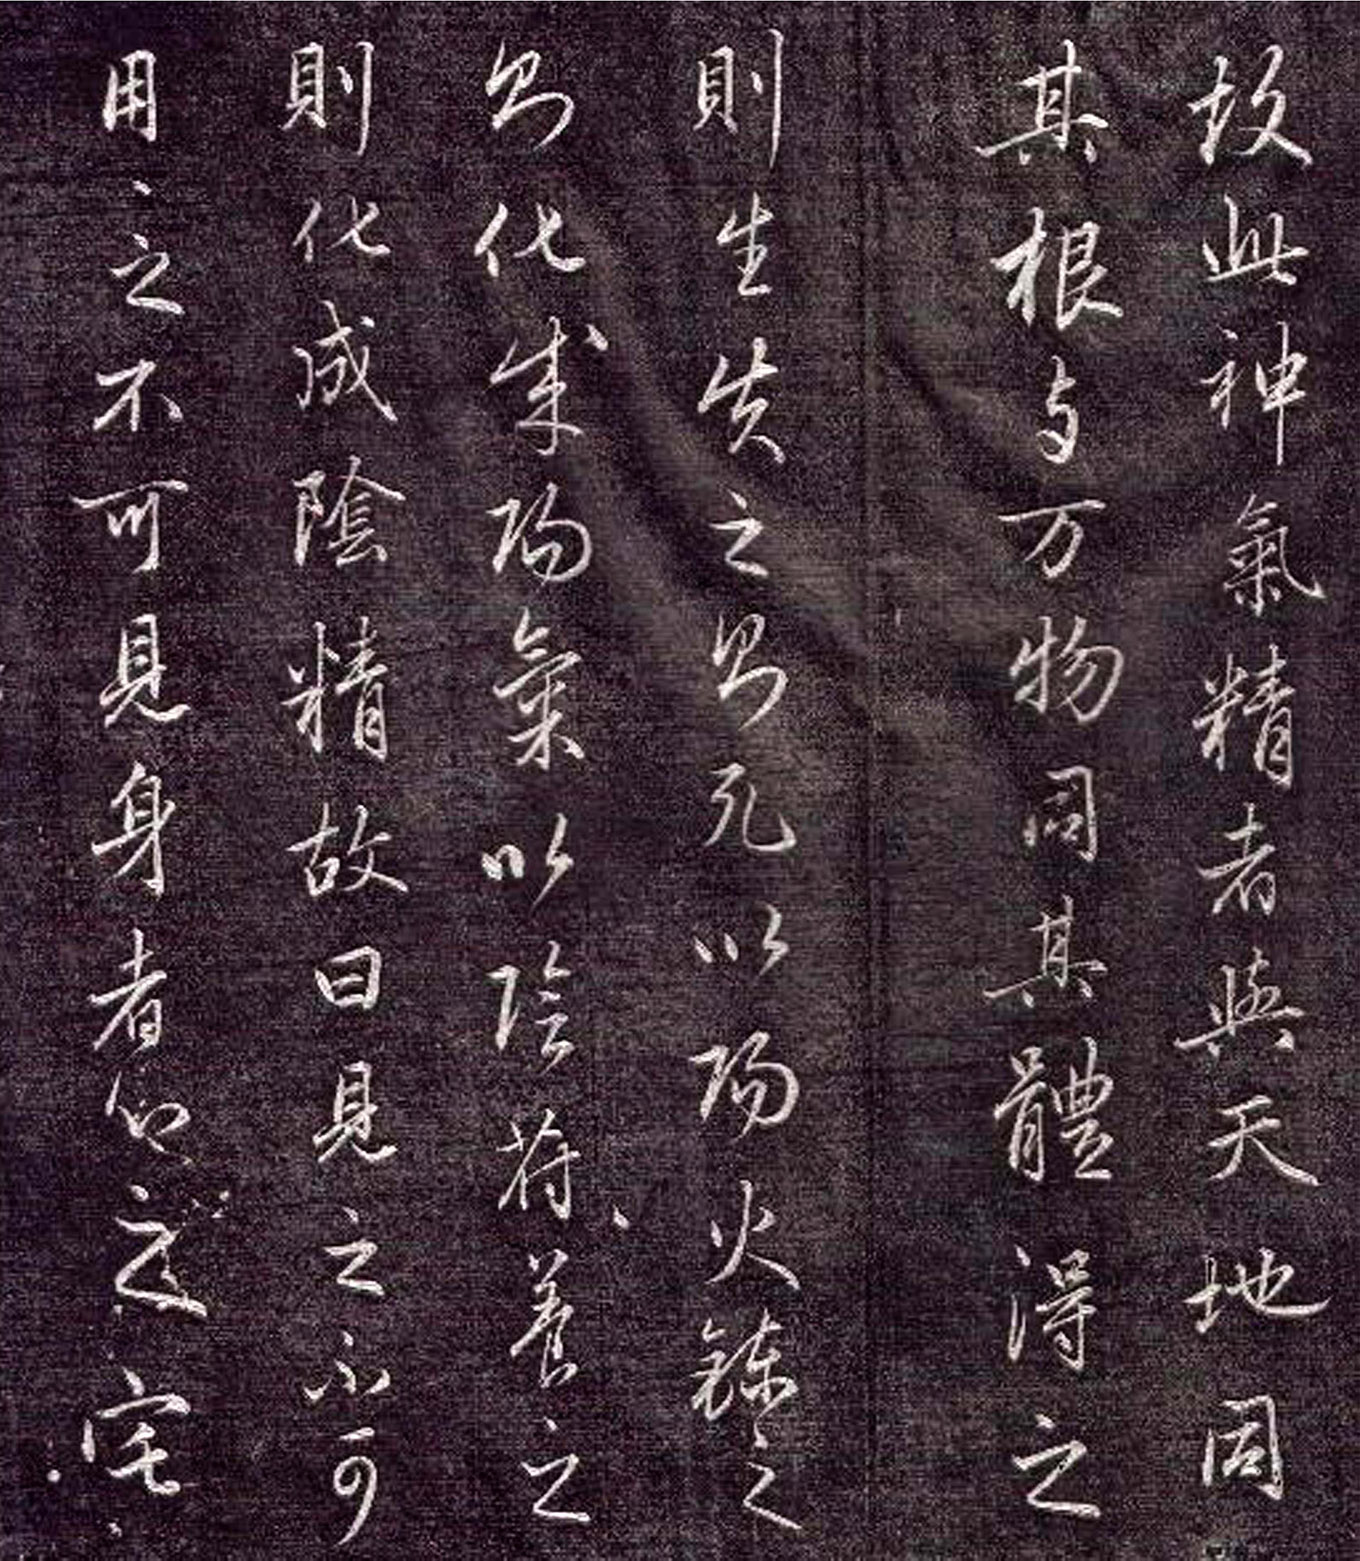 故此神氣精者與天地同
其根与万物同其體得之
則生失之則死以陽火鍊之
則化成陽氣以陰符養之
則化成陰精故曰見之不可
用之不可見身者心之宅